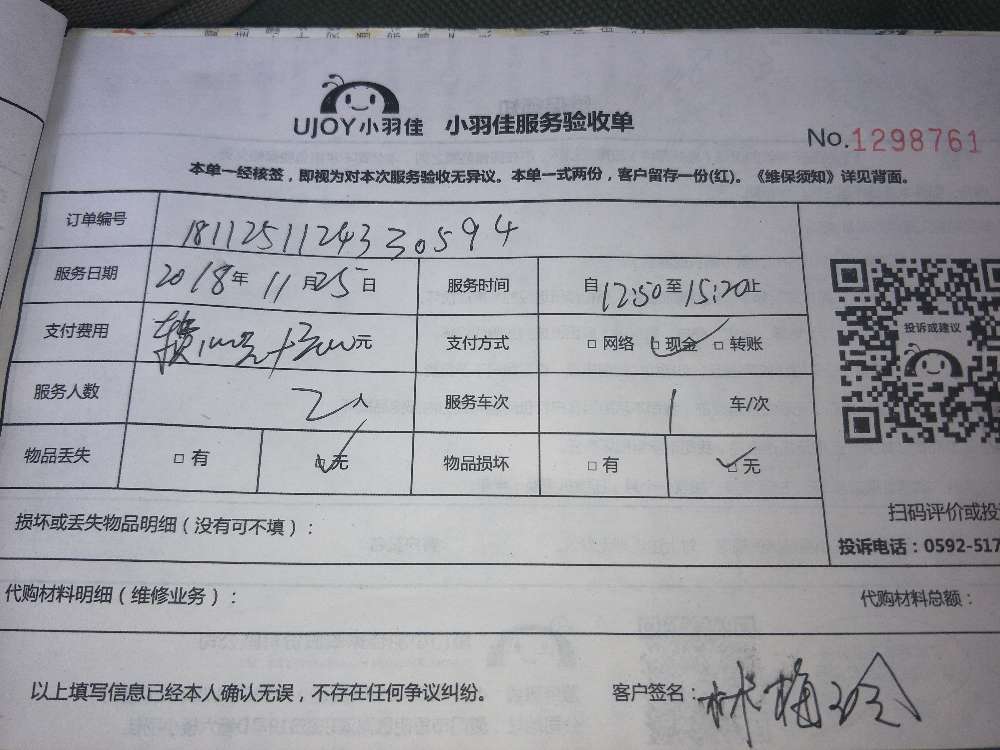 UJOY小羽佳 小羽佳服务验收单
No.1298761
本单一经核签，即视为对本次服务验收无异议。本单一式两份，客户留存一份(红)。《维保须知》详见背面。
订单编号 18112511243330594
服务日期 2018年11月25日 服务时间 自12:50至15:20止
支付费用 元 支付方式 □网络 □现金 □转账
服务人数 2人 服务车次 1 车/次
物品丢失 □有 □无 物品损坏 □有 □无
投诉或建议
扫码评价或投
损坏或丢失物品明细（没有可不填）：
投诉电话：0592-517
代购材料明细（维修业务）： 代购材料总额：
以上填写信息已经本人确认无误，不存在任何争议纠纷。 客户签名：林梅玲